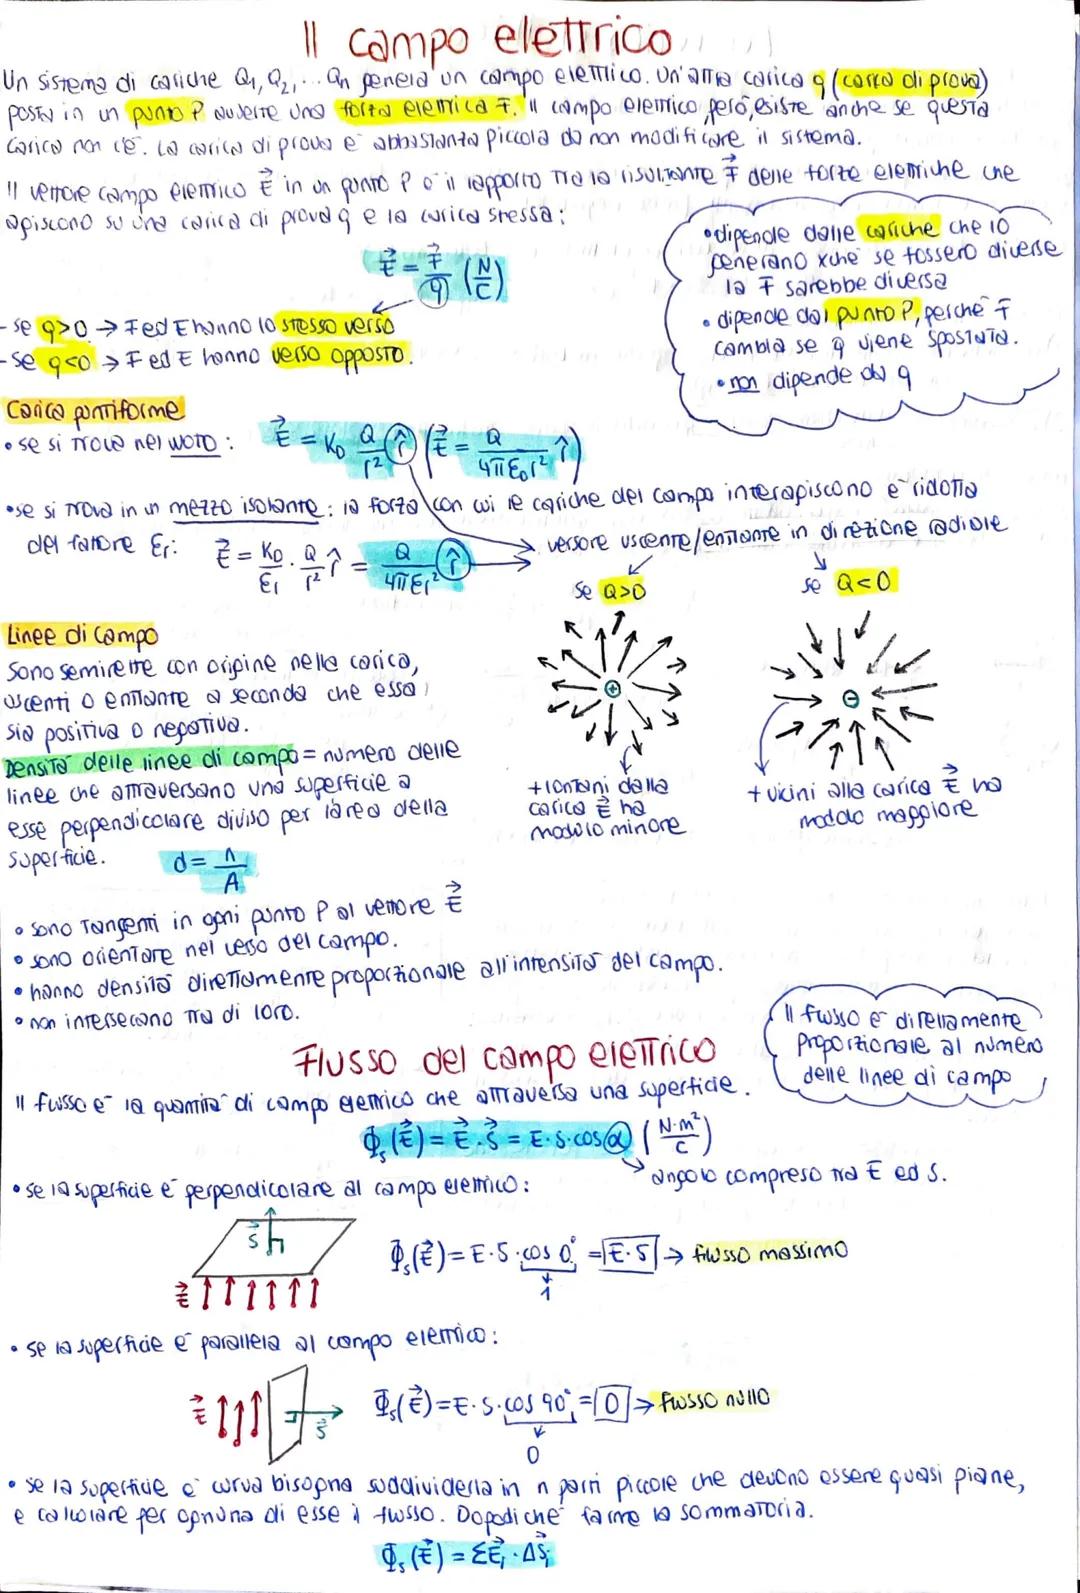 Il campo elettrico
Un sistema di cariche Q1, Q2, ... Qn genera un campo elettrico. Un'altra carica q (carica di prova)
posta in un punto P avverte una forza elettrica F. Il campo elettrico, però, esiste anche se questa
carica non c'è. La carica di prova è abbastanza piccola da non modificare il sistema.
Il vettore campo elettrico E⃗ in un punto P è il rapporto tra la risultante F⃗ delle forze elettriche che
agiscono su una carica di prova q e la carica stessa:
E⃗ = F⃗/q (N/C)
• dipende dalle cariche che lo
generano xchè se fossero diverse
la F sarebbe diversa
• dipende dal punto P, perchè F
cambia se q viene spostata.
• non dipende da q
- se q>0 → F ed E hanno lo stesso verso
- se q<0 → F ed E hanno verso opposto.
Carica puntiforme
• se si trova nel vuoto: E⃗ = K0 Q/r² r̂ (E⃗ = Q/4πε0r² r̂)
• se si trova in un mezzo isolante: la forza con cui le cariche del campo interagiscono è ridotta
del fattore εr: E⃗ = K0/εr · Q/r² r̂ = Q/4πεr² r̂
versore uscente/entrante in direzione radiale
se Q>0
se Q<0
Linee di campo
Sono semirette con origine nella carica,
uscenti o entrante a seconda che essa
sia positiva o negativa.
Densità delle linee di campo = numero delle
linee che attraversano una superficie a
esse perpendicolare diviso per l'area della
superficie. d = n/A
+
+ lontani dalla
carica E⃗ ha
modulo minore
-
+ vicini alla carica E⃗ ha
modulo maggiore
• sono tangenti in ogni punto P al vettore E⃗
• sono orientate nel verso del campo.
• hanno densità direttamente proporzionale all'intensità del campo.
• non intersecano tra di loro.
Il flusso è direttamente
proporzionale al numero
delle linee di campo
Flusso del campo elettrico
Il flusso è la quantità di campo elettrico che attraversa una superficie.
Φs(E⃗) = E⃗ · S⃗ = E·S·cos α (N·m²/C)
angolo compreso tra E ed S.
• se la superficie è perpendicolare al campo elettrico:
S⃗
E⃗
Φs(E⃗) = E·S·cos 0° = E·S → flusso massimo
1
• se la superficie è parallela al campo elettrico:
E⃗
S⃗
Φs(E⃗) = E·S·cos 90° = 0 → flusso nullo
0
• se la superficie è curva bisogna suddividerla in n parti piccole che devono essere quasi piane,
e calcolare per ognuna di esse il flusso. Dopodichè farne la sommatoria.
Φs(E⃗) = ΣE⃗i · ΔS⃗i